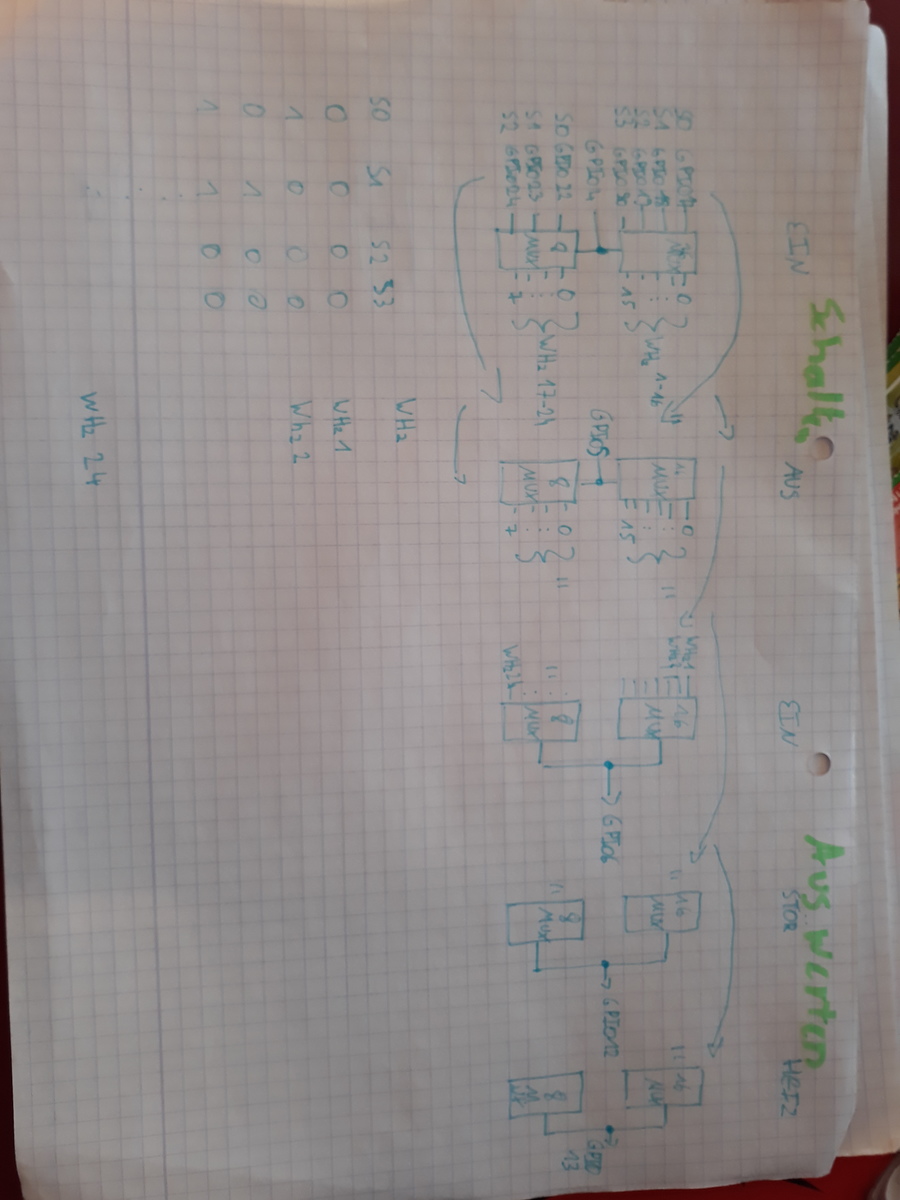 Schalten
Auswerten
EIN
AUS
EIN
STÖR
HEIZ
S0 GPIO
S1 GPIO
S2 GPIO
S3 GPIO
16
MUX
0
15
WHz 1-16
"
16
MUX
0
15
"
WHz1
WHz2
16
MUX
"
16
MUX
"
16
MUX
GPIO4
GPIO5
→ GPIO6
→ GPIO12
GPIO
13
S0 GPIO 22
S1 GPIO23
S2 GPIO24
8
MUX
0
7
WHz 17-24
8
MUX
0
7
"
"
WHz24
8
MUX
"
8
MUX
8
MUX
S0 S1 S2 S3 WHz
0 0 0 0 WHz 1
1 0 0 0 WHz 2
0 1 0 0
1 1 0 0
WHz 24